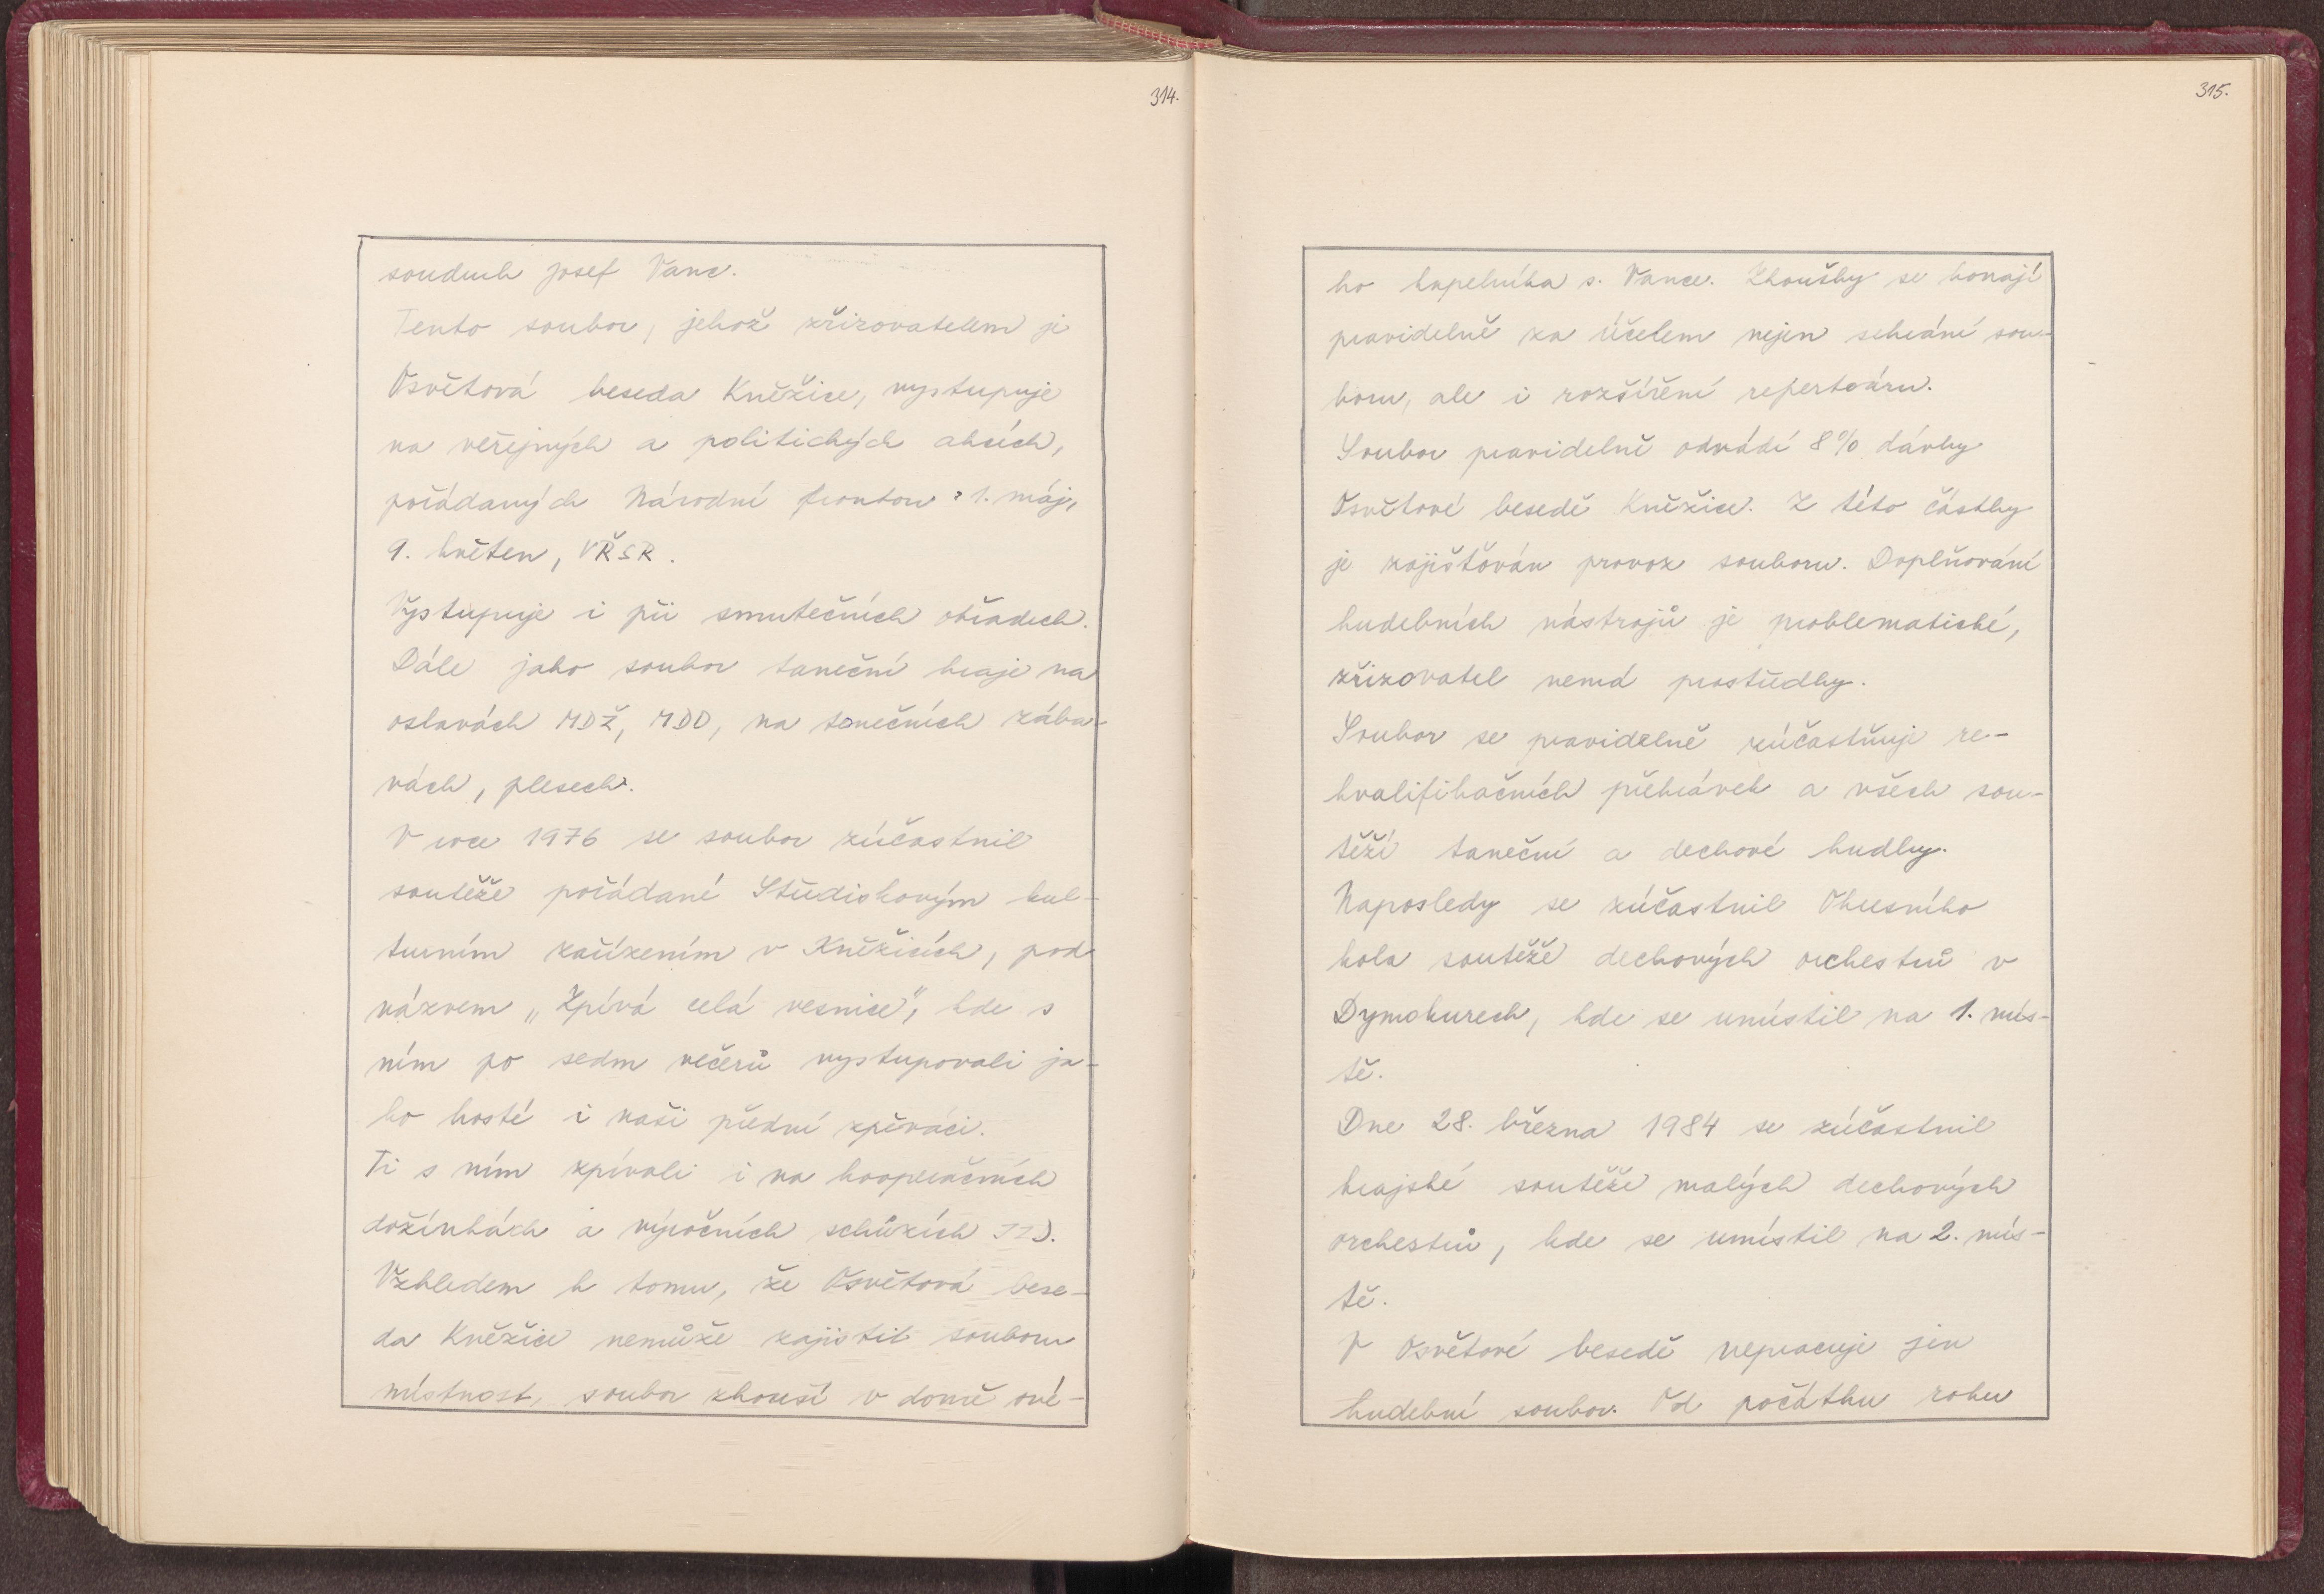 314.
soudruh Josef Vanc.
Tento soubor, jehož zřizovatelem je
Osvětová beseda Kněžice, vystupuje
na veřejných a politických akcích,
pořádaných Národní frontou: 1. máj,
9. květen, VŘSR.
Vystupuje i při smutečních obřadech.
Dále jako soubor taneční hraje na
oslavách MDŽ, MDD, na tanečních zába-
vách, plesech.
V roce 1976 se soubor zúčastnil
soutěže pořádané Střediskovým kul-
turním zařízením v Kněžicích, pod
názvem „Zpívá celá vesnice", kde s
ním po sedm večerů vystupovali ja-
ko hosté i naši přední zpěváci.
Ti s ním zpívali i na kooperačních
dožínkách a výročních schůzích JZD.
Vzhledem k tomu, že Osvětová bese-
da Kněžice nemůže zajistit souboru
místnost, soubor zkouší v domě své-
315.
ho kapelníka s. Vance. Zkoušky se konají
pravidelně za účelem nejen sehrání sou-
boru, ale i rozšíření repertoáru.
Soubor pravidelně odvádí 8% dávky
Osvětové besedě Kněžice. Z této částky
je zajišťován provoz souboru. Doplňování
hudebních nástrojů je problematické,
zřizovatel nemá prostředky.
Soubor se pravidelně zúčastňuje re-
kvalifikačních přehrávek a všech sou-
těží taneční a dechové hudby.
Naposledy se zúčastnil Okresního
kola soutěže dechových orchestrů v
Dymokurech, kde se umístil na 1. mís-
tě.
Dne 28. března 1984 se zúčastnil
krajské soutěže malých dechových
orchestrů, kde se umístil na 2. mís-
tě.
V Osvětové besedě nepracuje jen
hudební soubor. Od počátku roku